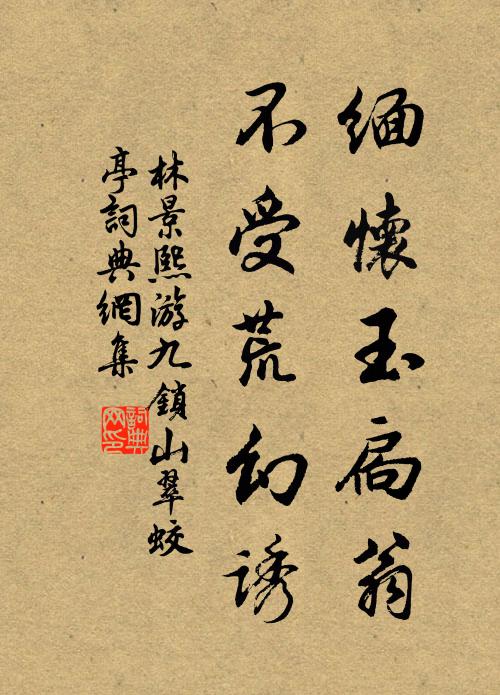 緬懷玉局翁
不受荒幻誘
林景熙游九鎖山翠蛟
亭詞典網集
詞典網印